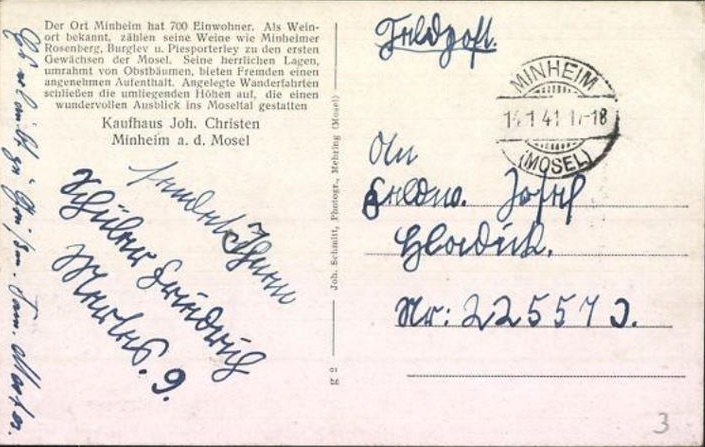 Der Ort Minheim hat 700 Einwohner. Als Wein-
ort bekannt, zählen seine Weine wie Minheimer
Rosenberg, Burglev u. Piesporterley zu den ersten
Gewächsen der Mosel. Seine herrlichen Lagen,
umrahmt von Obstbäumen, bieten Fremden einen
angenehmen Aufenthalt. Angelegte Wanderfahrten
schließen die umliegenden Höhen auf, die einen
wundervollen Ausblick ins Moseltal gestatten
Kaufhaus Joh. Christen
Minheim a. d. Mosel
sendet Ihnen
Schüler Friedrich
Mertes. 9.
zu Grüßen. Fam. Mertes.
Joh. Schmitt, Photogr., Mehring (Mosel)
g 2
Feldpost.
MINHEIM
14.1 41 17-18
(MOSEL)
An
Josef
Nr: 22557 J.
3